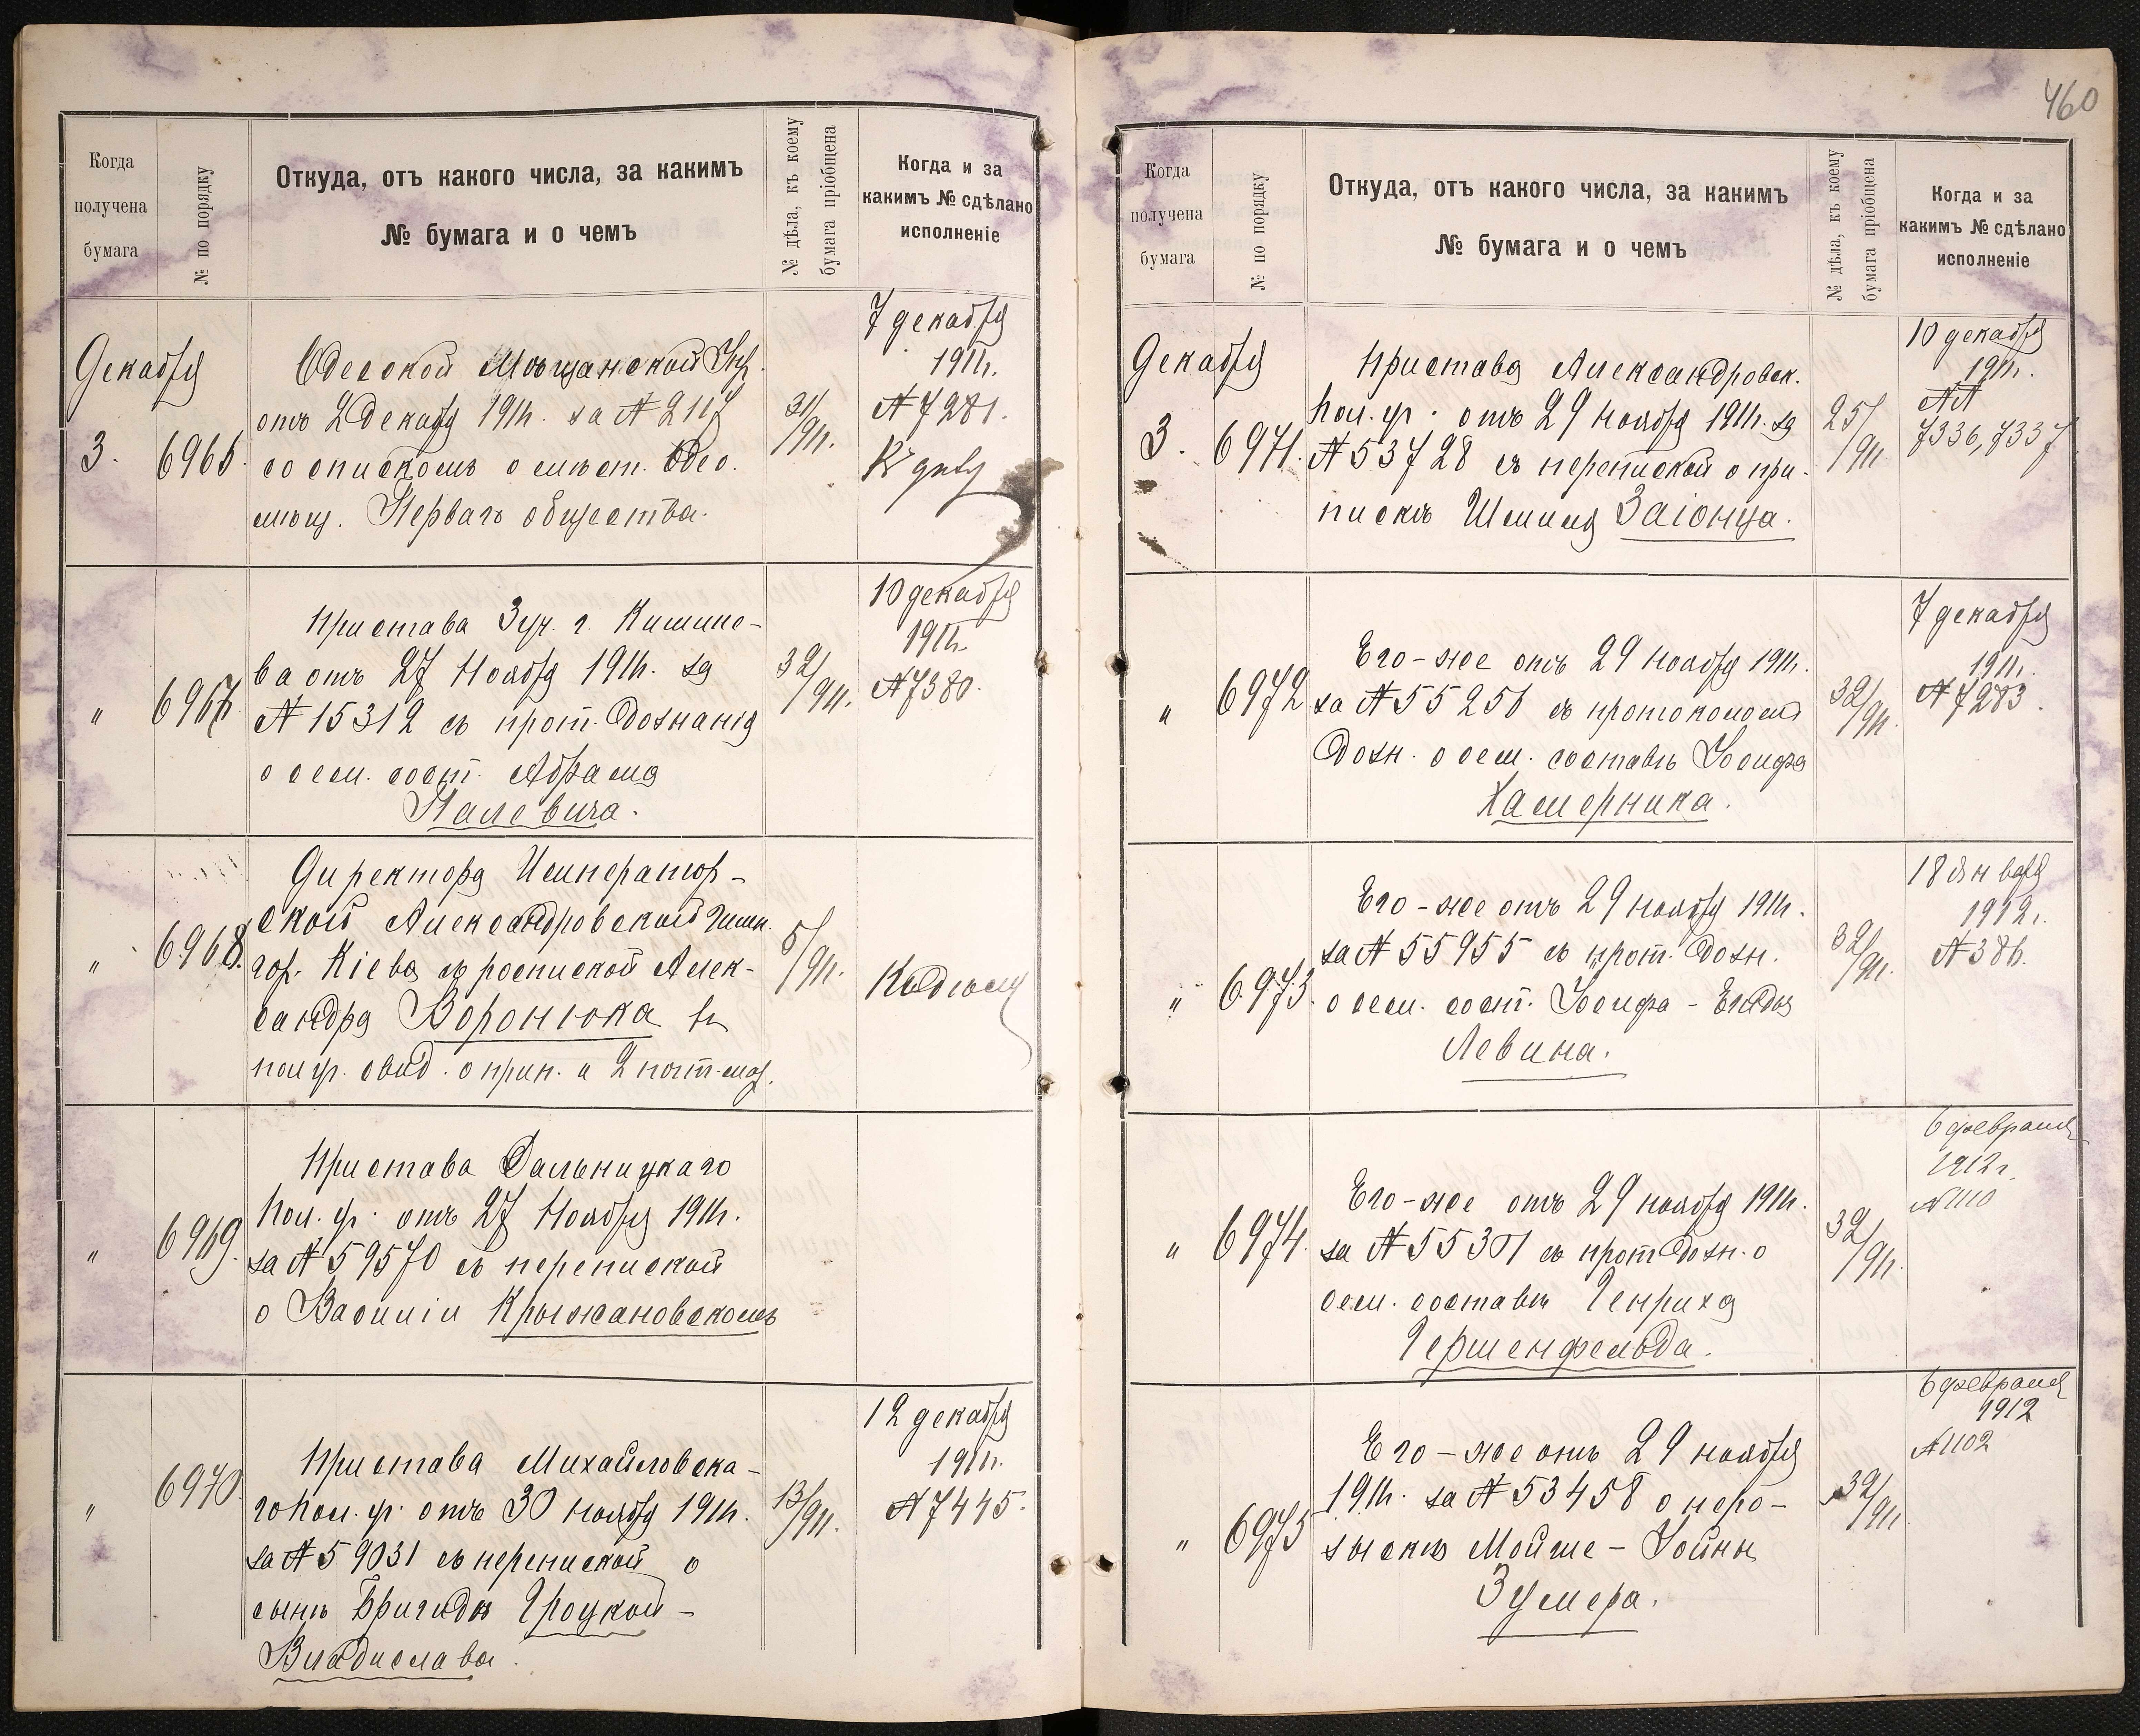 460
Когда получена бумага
№ по порядку
Откуда, отъ какого числа, за какимъ
№ бумага и о чемъ
№ дѣла, къ коему бумага пріобщена
Когда и за какимъ № сдѣлано исполненіе
Декабря
3.
6966.
Одесской Мѣщанской Упр.
отъ 2 Декабр 1911г. за № 2117
со спискомъ о мѣст. Одес.
мѣщ. Перваго общества.
31/911.
7 декабря
1911г.
№ 7281.
Къ дѣлу
"
6967.
Пристава 3 уч. г. Кишине-
ва отъ 27 Ноября 1911г. за
№ 15312 съ прот. дознанія
о сем. сост. Абрама
Палевича.
32/911.
10 декабря
1911г.
№ 7380.
"
6968.
Директора Император-
ской Александровской Гимн.
гор. Кіева съ роспиской Алек-
сандра Воронюка въ
пол уч. свид. о прип. и 2 почт. мар.
5/911.
Къ дѣлу
"
6969.
Пристава Дальницкаго
Пол. уч. отъ 27 Ноября 1911г.
за № 59570 съ перепиской
о Василіи Крыжановскомъ
"
6970.
Пристава Михайловска-
го Пол. уч. отъ 30 ноября 1911г.
за № 59031 съ перепиской о
сынѣ Бригиды Гроцкой-
Владислава.
13/911.
12 декабря
1911г.
№ 7445.
Когда получена бумага
№ по порядку
Откуда, отъ какого числа, за какимъ
№ бумага и о чемъ
№ дѣла, къ коему бумага пріобщена
Когда и за какимъ № сдѣлано исполненіе
Декабря
3.
6971.
Пристава Александровск.
Пол. уч. отъ 29 Ноября 1911г. за
№ 53728 съ перепиской о при-
пискѣ Шлима Заіонца.
25/911
10 декабря
1911г.
№№
7336, 7337
"
6972.
Его-же отъ 29 Ноября 1911г.
за № 55256 съ протоколомъ
дозн. о сем. составѣ Іосифа
Хамерника.
32/911.
7 декабря
1911г.
№ 7283.
"
6973.
Его-же отъ 29 ноября 1911г.
за № 55955 съ прот. дозн.
о сем. сост. Іосифа-
Левина.
32/911.
18 января
1912г.
№ 386.
"
6974.
Его-же отъ 29 ноября 1911г.
за № 55301 съ прот. дозн. о
сем. составѣ Генриха
Гершенфельда.
32/911.
6 февраля
1912г.
№ 1110
"
6975
Его-же отъ 29 ноября
1911г. за № 53458 о неро-
зыскѣ Мойше-Іойны
Зумера.
32/911
6 февраля
1912
№ 1102